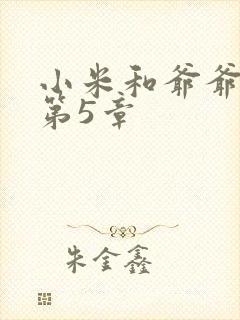 小米和爷爷
第5章
朱金鑫